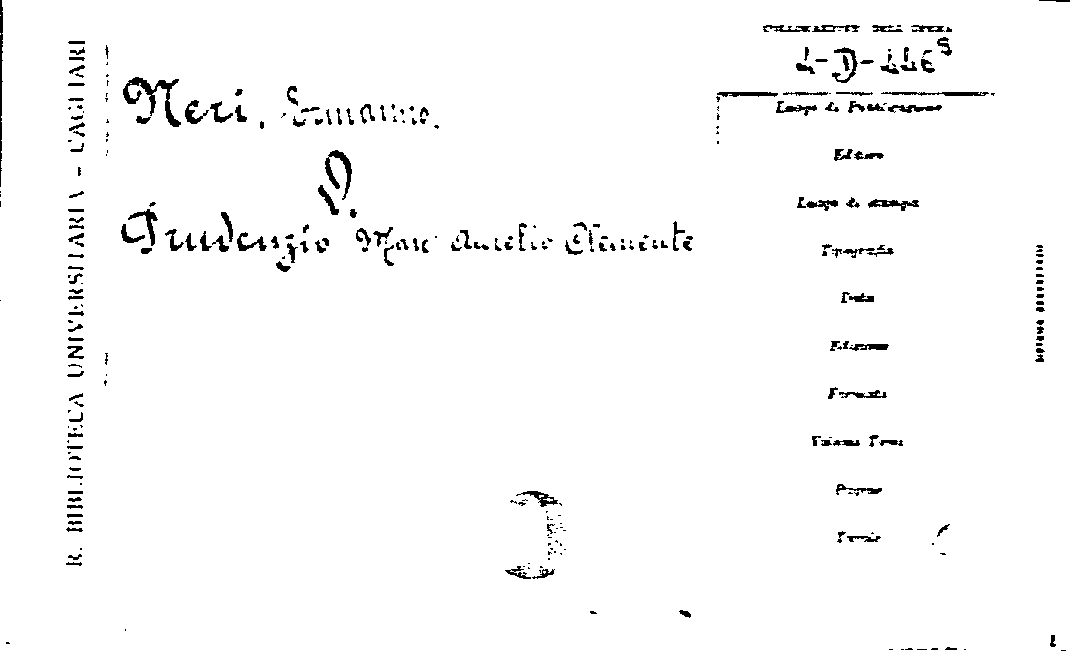 R. BIBLIOTECA UNIVERSITARIA - CAGLIARI
COLLOCAZIONE DELL'OPERA
Neri, Ermanno.
V.
Prudenzio Marc' Aurelio Clemente
Luogo di Pubblicazione
Editore
Luogo di stampa
Tipografia
Data
Edizione
Formato
Volumi Tomi
Pagine
Tavole